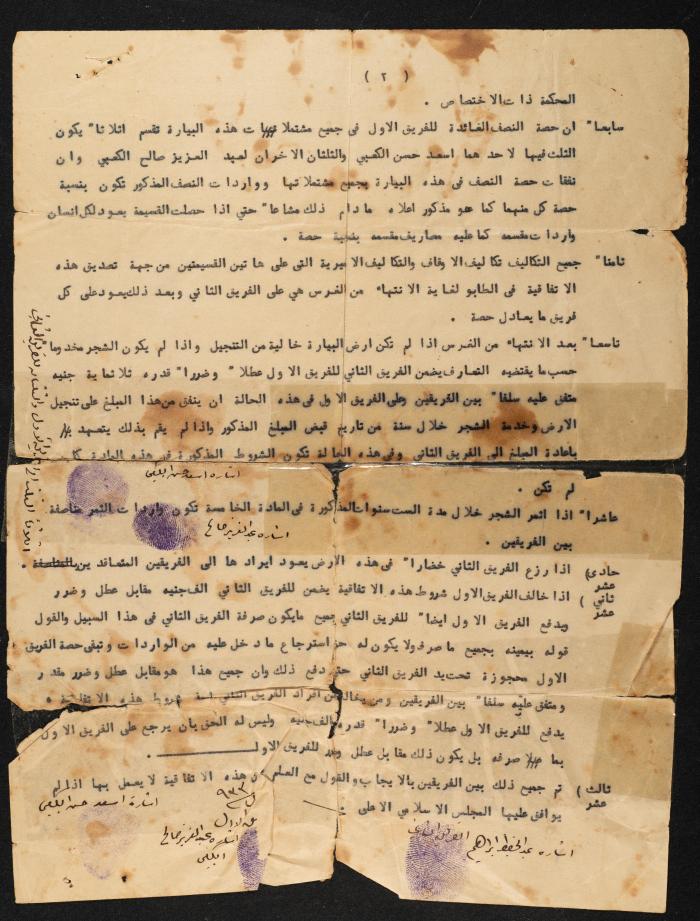 ( ٢ )
المحكمة ذات الاختصاص .
سابعا" ان حصة النصف العائدة للفريق الاول في جميع مشتملات هذه البيارة تقسم اثلاثا" يكون
الثلث فيها لاحدهما اسعد حسن الكعبي والثلثان الاخران لعبد العزيز صالح الكعبي وان
نفقات حصة النصف في هذه البيارة بجميع مشتملاتها وواردات النصف المذكور تكون بنسبة
حصة كل منهما كما هو مذكور اعلاه مادام ذلك مشاعا" حتي اذا حصلت القسيمة يعود لكل انسان
واردات مقسمه كما عليه مصاريف مقسمه بنسبة حصة .
ثامنا" جميع التكاليف تكاليف الاوقاف والتكاليف الاميرية التى على هاتين القسيمتين من جهة تصديق هذه
الاتفاقية في الطابو لغاية الانتهاء من الغرس هي على الفريق الثاني وبعد ذلك يعود على كل
فريق ما يعادل حصة .
تاسعا" بعد الانتهاء من الغرس اذا لم تكن ارض البيارة خالية من النتجيل واذا لم يكون الشجر مخدوما"
حسب ما يقتضيه التعارف يضمن الفريق الثاني للفريق الاول عطلا" وضررا" قدره ثلاثماية جنيه
متفق عليه سلفا" بين الفريقين وعلى الفريق الاول في هذه الحالة ان ينفق من هذا المبلغ على تنجيل
الارض وخدمة الشجر خلال سنة من تاريخ قبض المبلغ المذكور واذا لم يقم بذلك يتعهد
باعادة المبلغ الى الفريق الثاني وفي هذه الحالة تكون الشروط المذكورة في هذه المادة كان
لم تكن .
اشارة اسعد حسن الكعبي
عاشرا" اذا اثمر الشجر خلال مدة الست سنوات المذكورة في المادة الخامسة تكون واردات الثمر مناصفة
اشارة عبد العزيز صالح
بين الفريقين .
حادي عشر ) اذا زرع الفريق الثاني خضارا" في هذه الارض يعود ايرادها الى الفريقين المتعاقدين .
ثاني عشر ) اذا خالف الفريق الاول شروط هذه الاتفاقية يضمن للفريق الثاني الف جنيه مقابل عطل وضرر
ويدفع الفريق الاول ايضا" للفريق الثاني جميع مايكون صرفة الفريق الثاني في هذا السبيل والقول
قوله بيمينه بجميع ما صرف ولا يكون له حق استرجاع ما دخل عليه من الواردات وتبقى حصة الفريق
الاول محجوزة تحت يد الفريق الثاني حتى دفع ذلك وان جميع هذا هو مقابل عطل وضرر مقدر
ومتفق عليه سلفا" بين الفريقين ومن يخالف من افراد الفريق الثاني شروط هذه الاتفاقية
يدفع للفريق الاول عطلا" وضررا" قدره الف جنيه وليس له الحق بان يرجع على الفريق الاول
بما صرفه بل يكون ذلك مقابل عطل وضرر للفريق الاول
ثالث عشر ) تم جميع ذلك بين الفريقين بالايجاب والقول مع العلم ان هذه الاتفاقية لا يعمل بها اذا لم
يوافق عليها المجلس الاسلامي الاعلى .
اشارة اسعد حسن الكعبي
اشارة عبد العزيز صالح
الكعبي
اشارة عبد الحفيظ ابراهيم